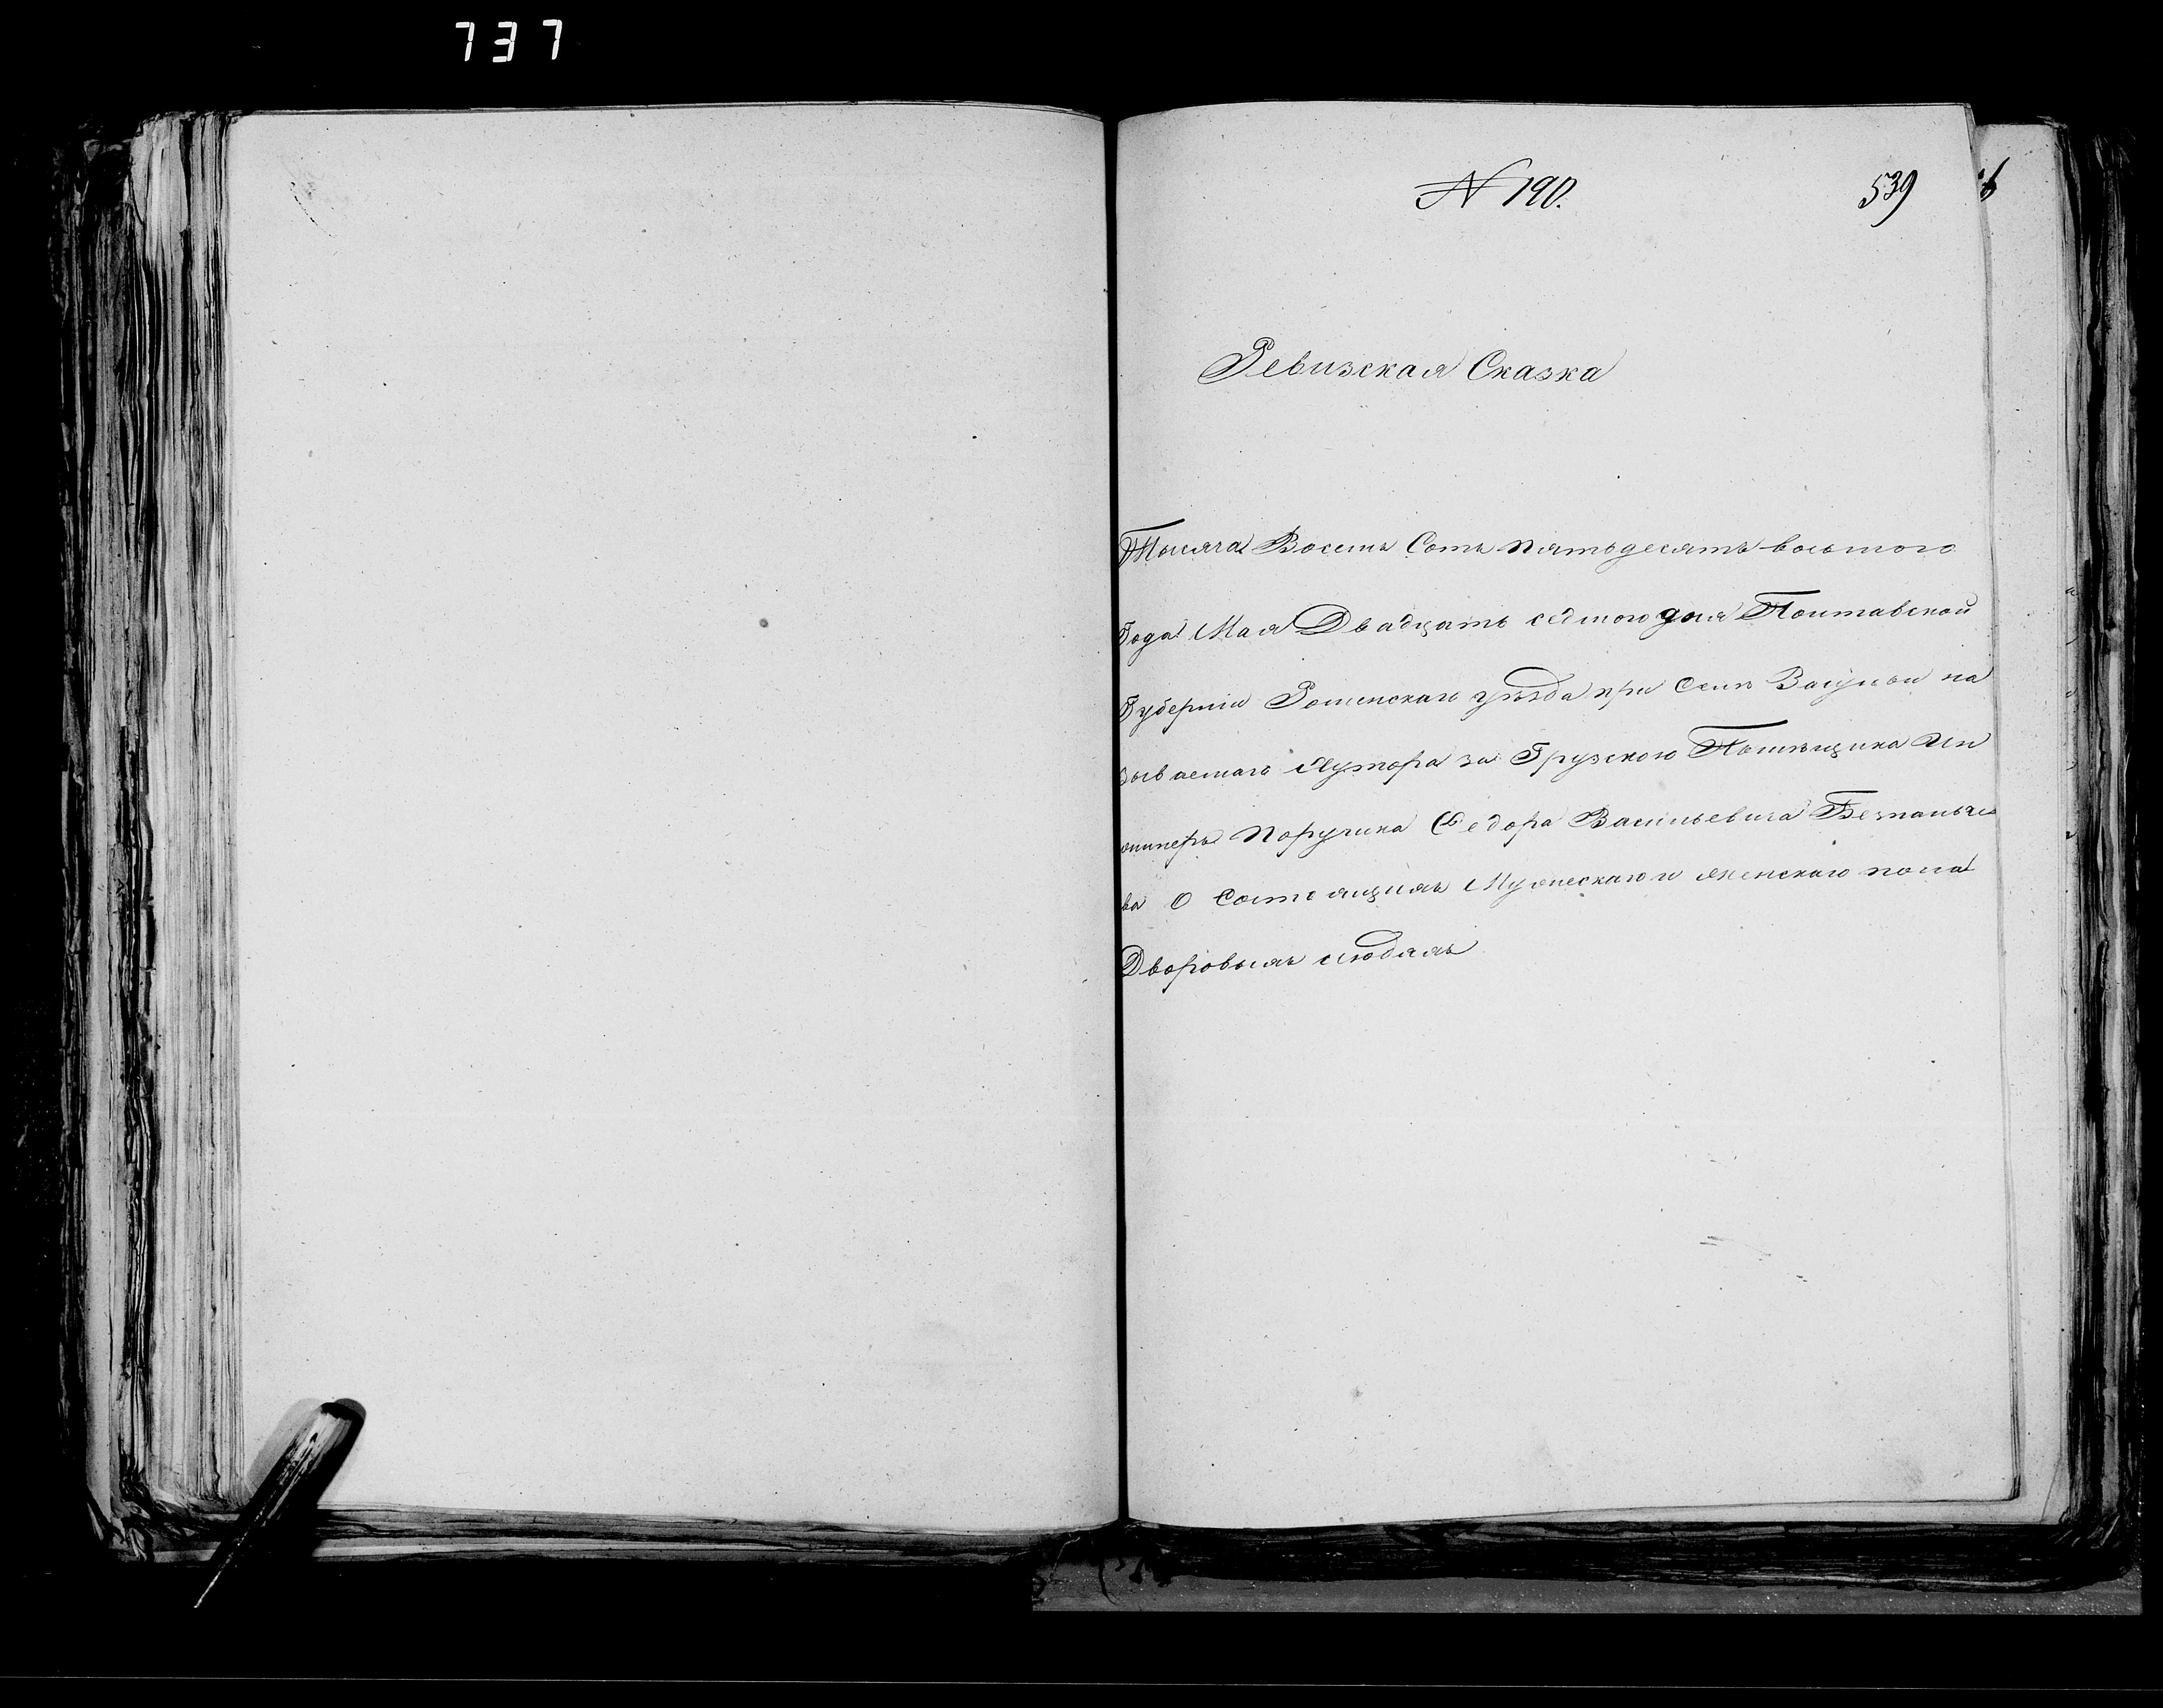 737
N 190.
539
Ревизская Сказка
Тысяча Восемь Сотъ пятьдесятъ восьмого
Года Мая Двадцать седмого дня Полтавской
Губерніи Роменскаго уѣзда при Селѣ на
зываемаго Хутора за Грузскою Помѣщика Ин
жинеръ Поручика Федора Васильевича
ва О Состоящихъ Мужескаго и женскаго пола
Дворовыхъ людяхъ